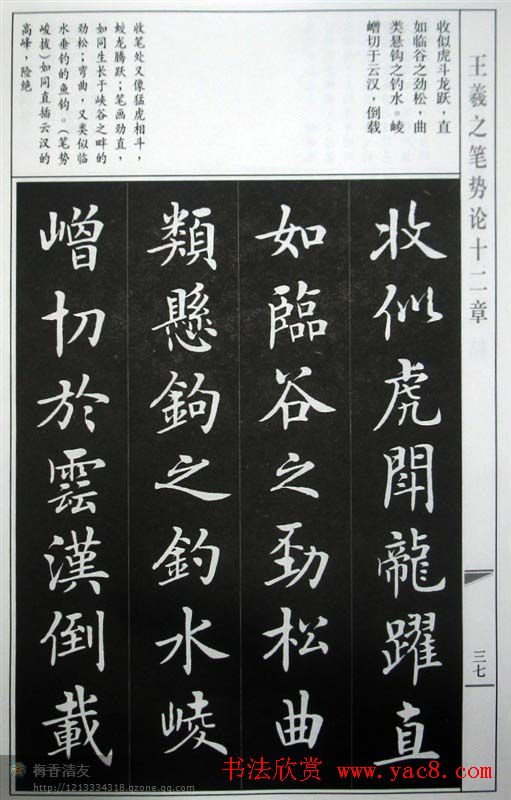 王羲之笔势论十二章
三七
收似虎斗龙跃，直
如临谷之劲松，曲
类悬钩之钓水。崚
嶒切于云汉，倒载
收笔处又像猛虎相斗，
蛟龙腾跃；笔画劲直，
如同生长于峡谷之畔的
劲松；弯曲，又类似临
水垂钓的鱼钩。（笔势
峻拔）如同直插云汉的
高峰，险绝
收似虎鬪龍躍直
如臨谷之勁松曲
類懸鉤之釣水崚
嶒切於雲漢倒載
梅香清友
http://1213334318.qzone.qq.com
书法欣赏 www.yac8.com